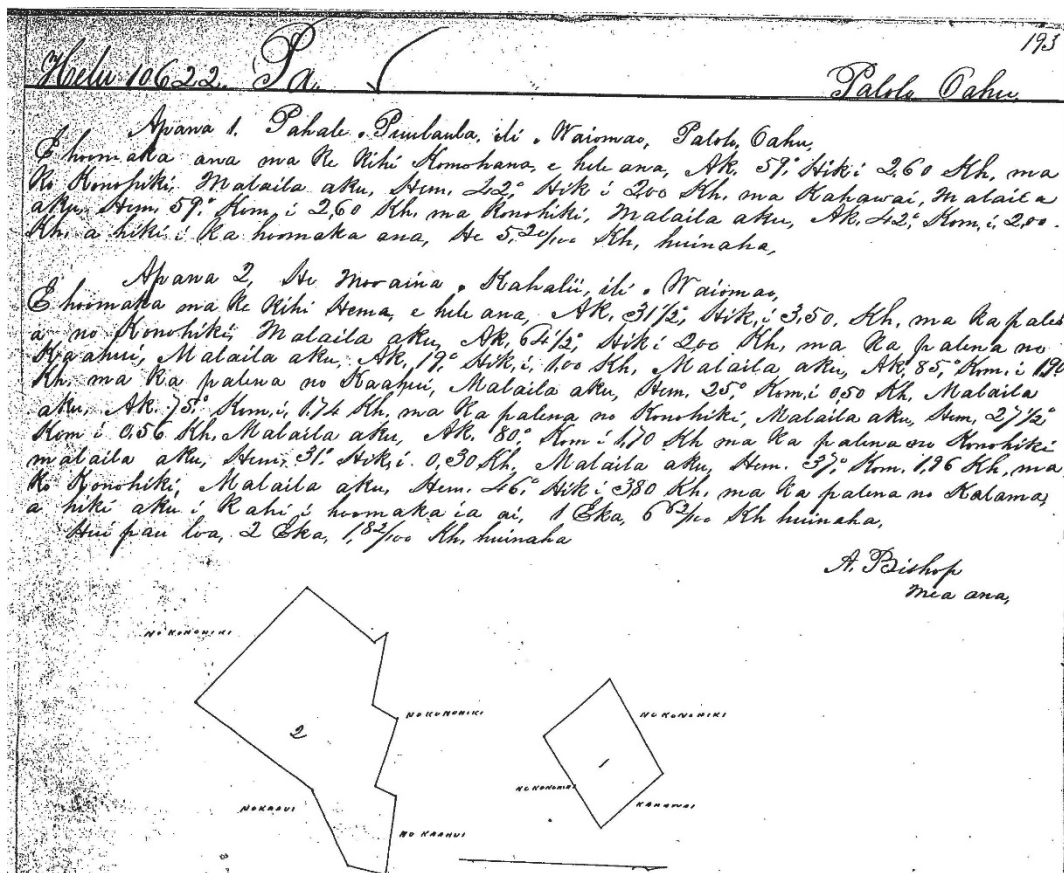 193
Helu 10622. Pa. Palolo Oahu.
Apana 1. Pahale. Puulaula. ili. Waiomao, Palolo, Oahu,
E hoomaka ana ma ke Kihi Komohana, e hele ana, Ak. 59.° Hik i 2,60 Kh. ma
ko Konohiki, Malaila aku, Hem. 42.° Hik i 2,00 Kh. ma Kahawai, Malaila
aku, Hem. 59.° Kom, i 2,60 Kh. ma Konohiki, Malaila aku, Ak. 42.° Kom, i 2,00.
Kh, a hiki i ka hoomaka ana, He 5,20/100 Kh, huinaha,
Apana 2, He Mooaina. Kahalii, ili. Waiomao,
E hoomaka ma ke Kihi Hema, e hele ana, Ak. 31 1/2,° Hik, i 3,50. Kh. ma ka palen
a no Konohiki, Malaila aku, Ak. 64 1/2,° Hik i 2,00 Kh, ma ka palena no
Kaahui, Malaila aku, Ak, 19.° Hik, i 1,00 Kh, Malaila aku, Ak, 85,° Kom, i 1,90
Kh, ma ka palena no Kaahui, Malaila aku, Hem. 25° Kom, i 0,50 Kh, Malaila
aku, Ak. 75.° Kom, i, 1,74 Kh, ma ka palena no Konohiki, Malaila aku, Hem, 27 1/2°
Kom i 0,56 Kh, Malaila aku, Ak. 80,° Kom i 1,70 Kh ma ka palena no Konohiki
malaila aku, Hem, 31.° Hik, i 0,30 Kh, Malaila aku, Hem. 37,° Kom. 1,96 Kh, ma
ko Konohiki, Malaila aku, Hem. 46,° Hik i 380 Kh. ma ka palena no Kalama,
a hiki aku i Kahi i hoomaka ia ai, 1 Eka, 6 62/100 Kh huinaha,
Hui pau loa, 2 Eka, 1,82/100 Kh, huinaha
A. Bishop
Mea ana,
NO KONOHIKI
2
NO KONOHIKI
NO KAAHUI
1
NO KONOHIKI
NO KONOHIKI
KAHAWAI